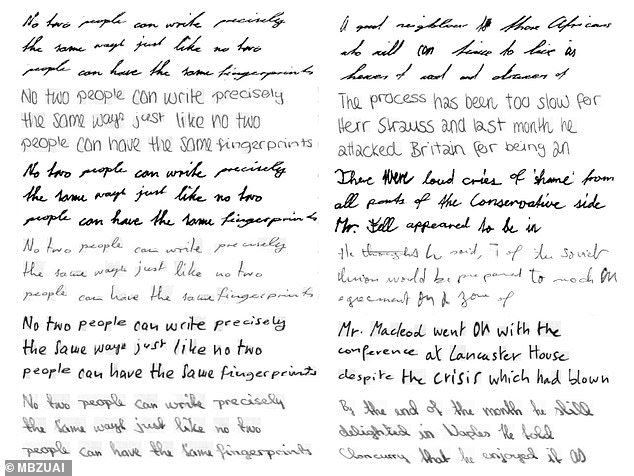 No two people can write precisely
the same way just like no two
people can have the same fingerprints
No two people can write precisely
the same ways just like no two
people can have the same fingerprints
No two people can write precisely
the same way just like no two
people can have the same fingerprints
No two people can write precisely
the same ways just like no two
people can have the same fingerprints
No two people can write precisely
the same ways just like no two
people can have the same fingerprints
No two people can write precisely
the same ways just like no two
people can have the same fingerprints
© MBZUAI
A good neighbour those Africans
who will can to live in
of and of
The process has been too slow for
Herr Strauss and last month he
attacked Britain for being an
There were loud cries of 'shame' from
all parts of the Conservative side
Mr. appeared to be in
He thought he said, of the Soviet
Union would be prepared to reach an
agreement on a zone of
Mr. Macleod went on with the
conference at Lancaster House
despite the crisis which had blown
By the end of the month he still
delighted in Naples He told
that he enjoyed it as